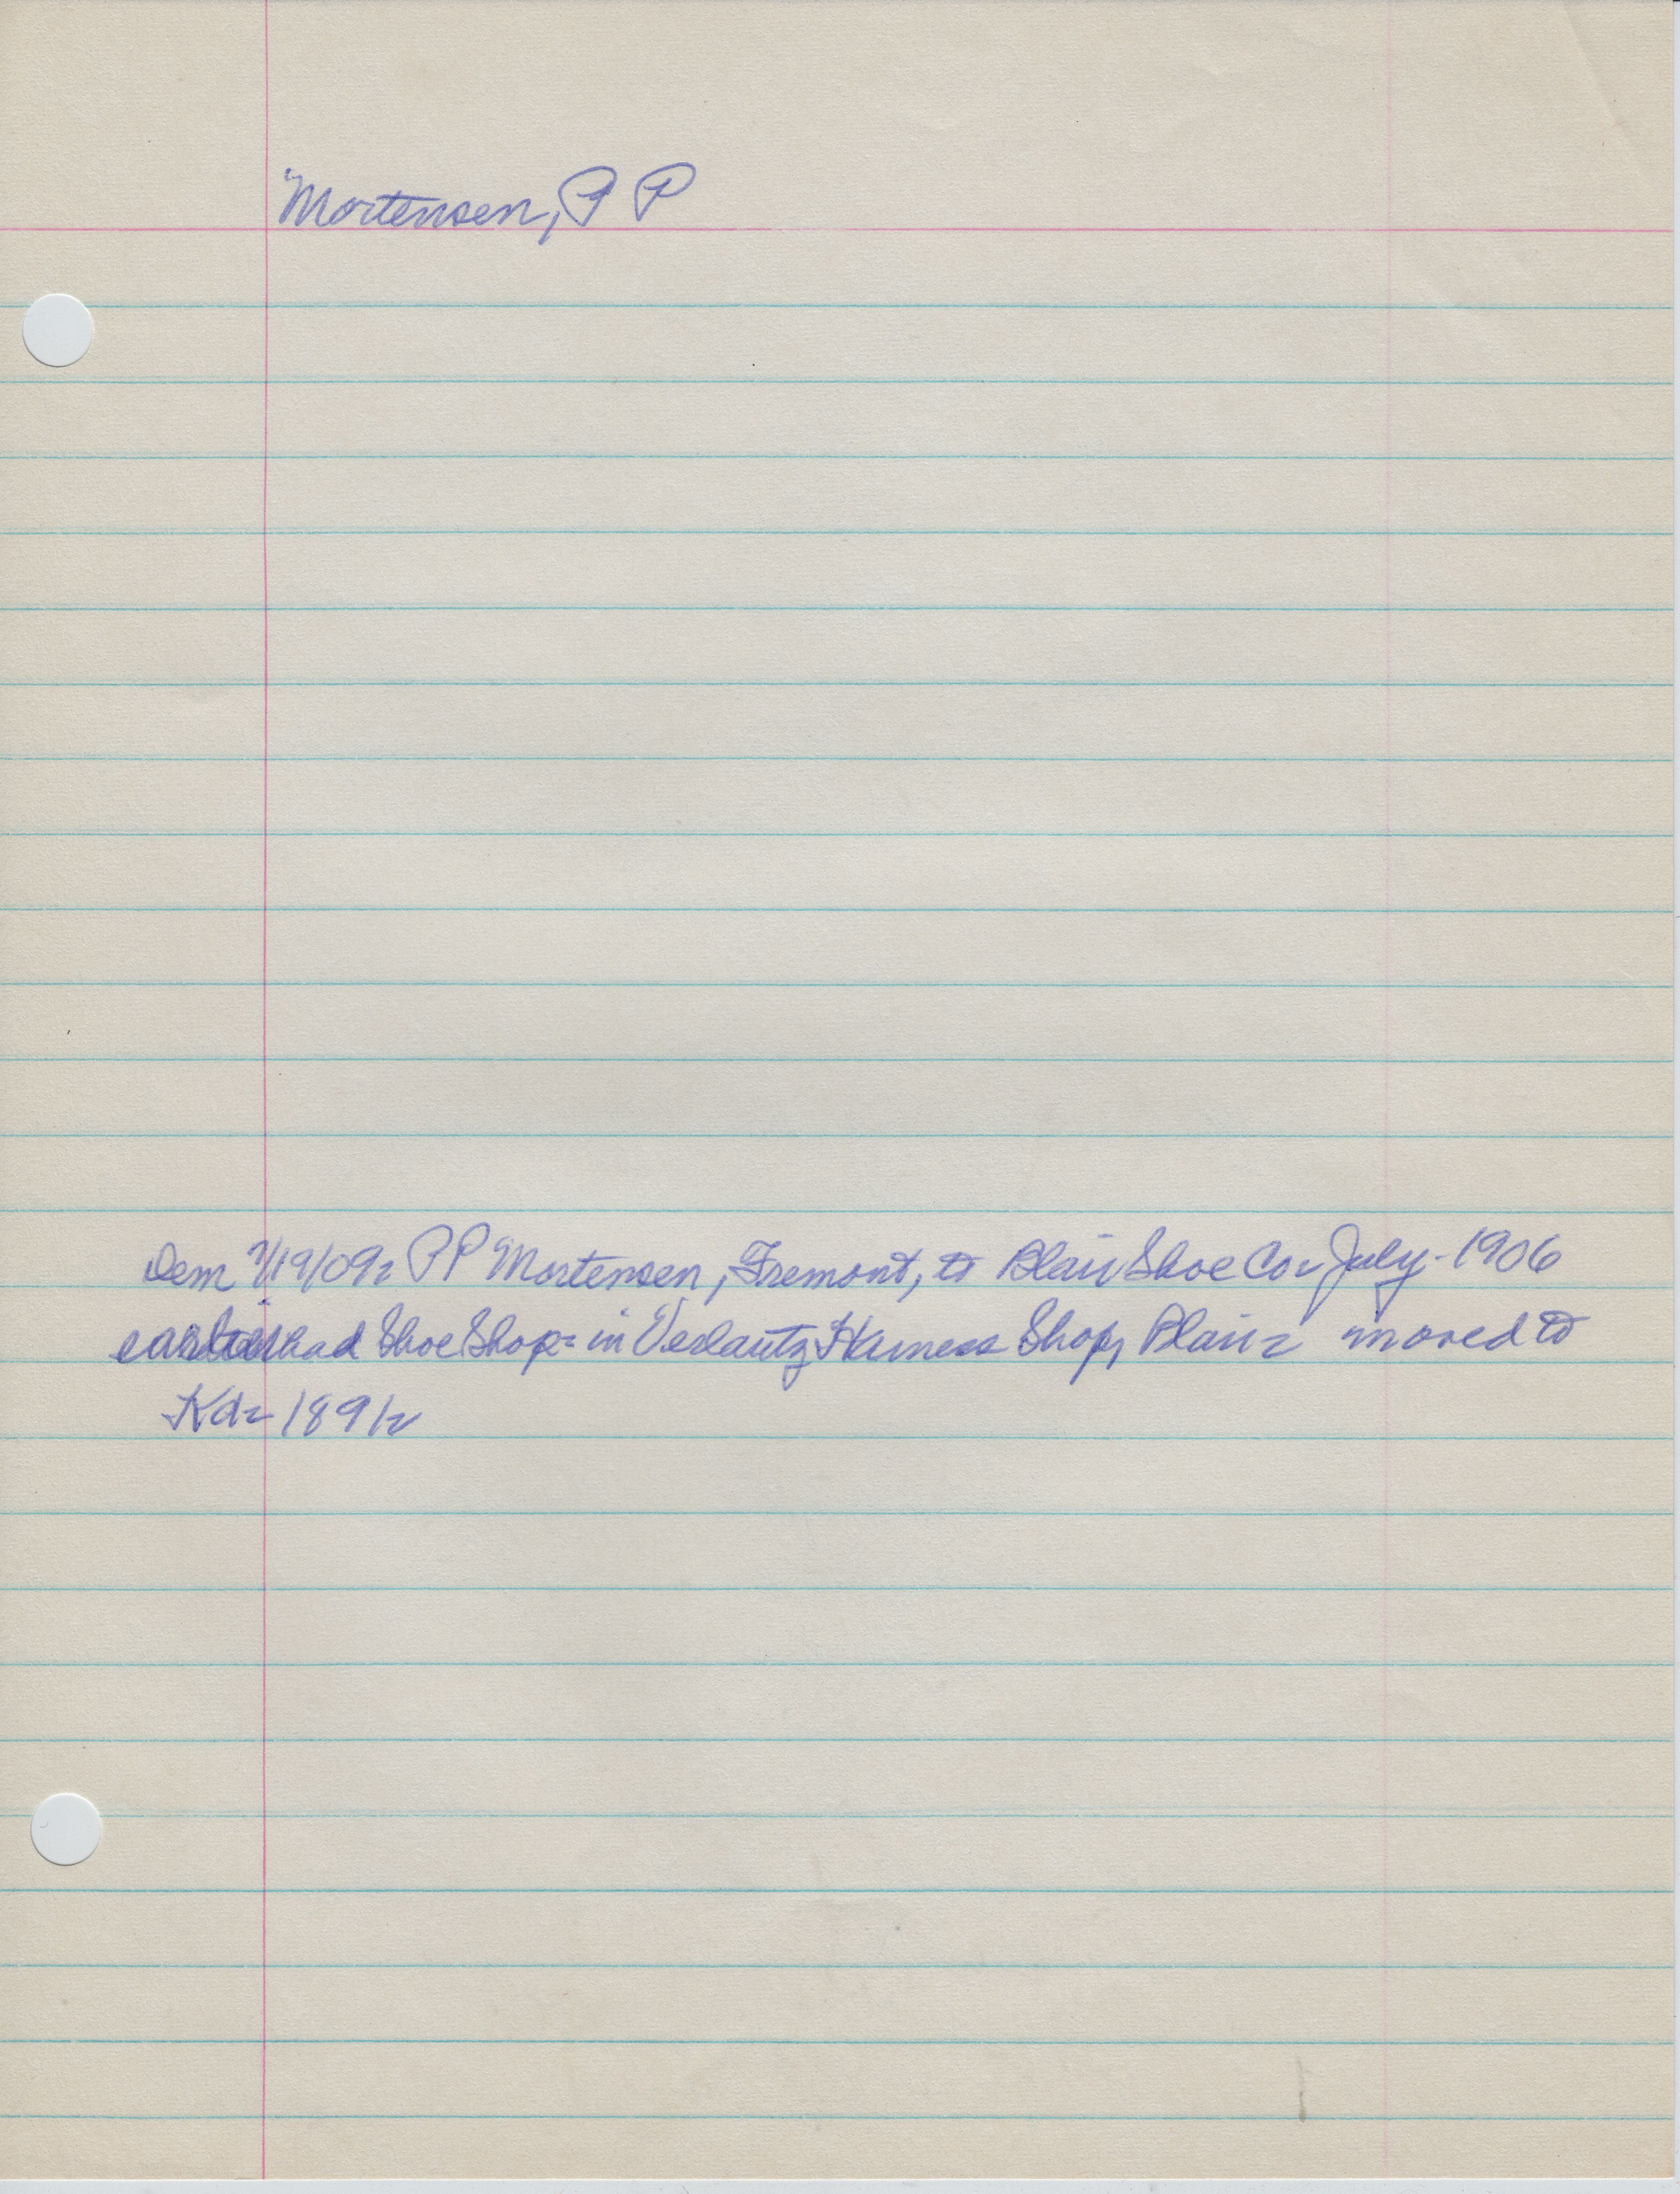 Mortensen, P P
Dem 7/19/09, PP Mortensen, Fremont, to Blair Shoe Co - July - 1906
earlier had Shoe Shop - in Veslautz Harness Shop, Blair - moved to
Kd - 1891